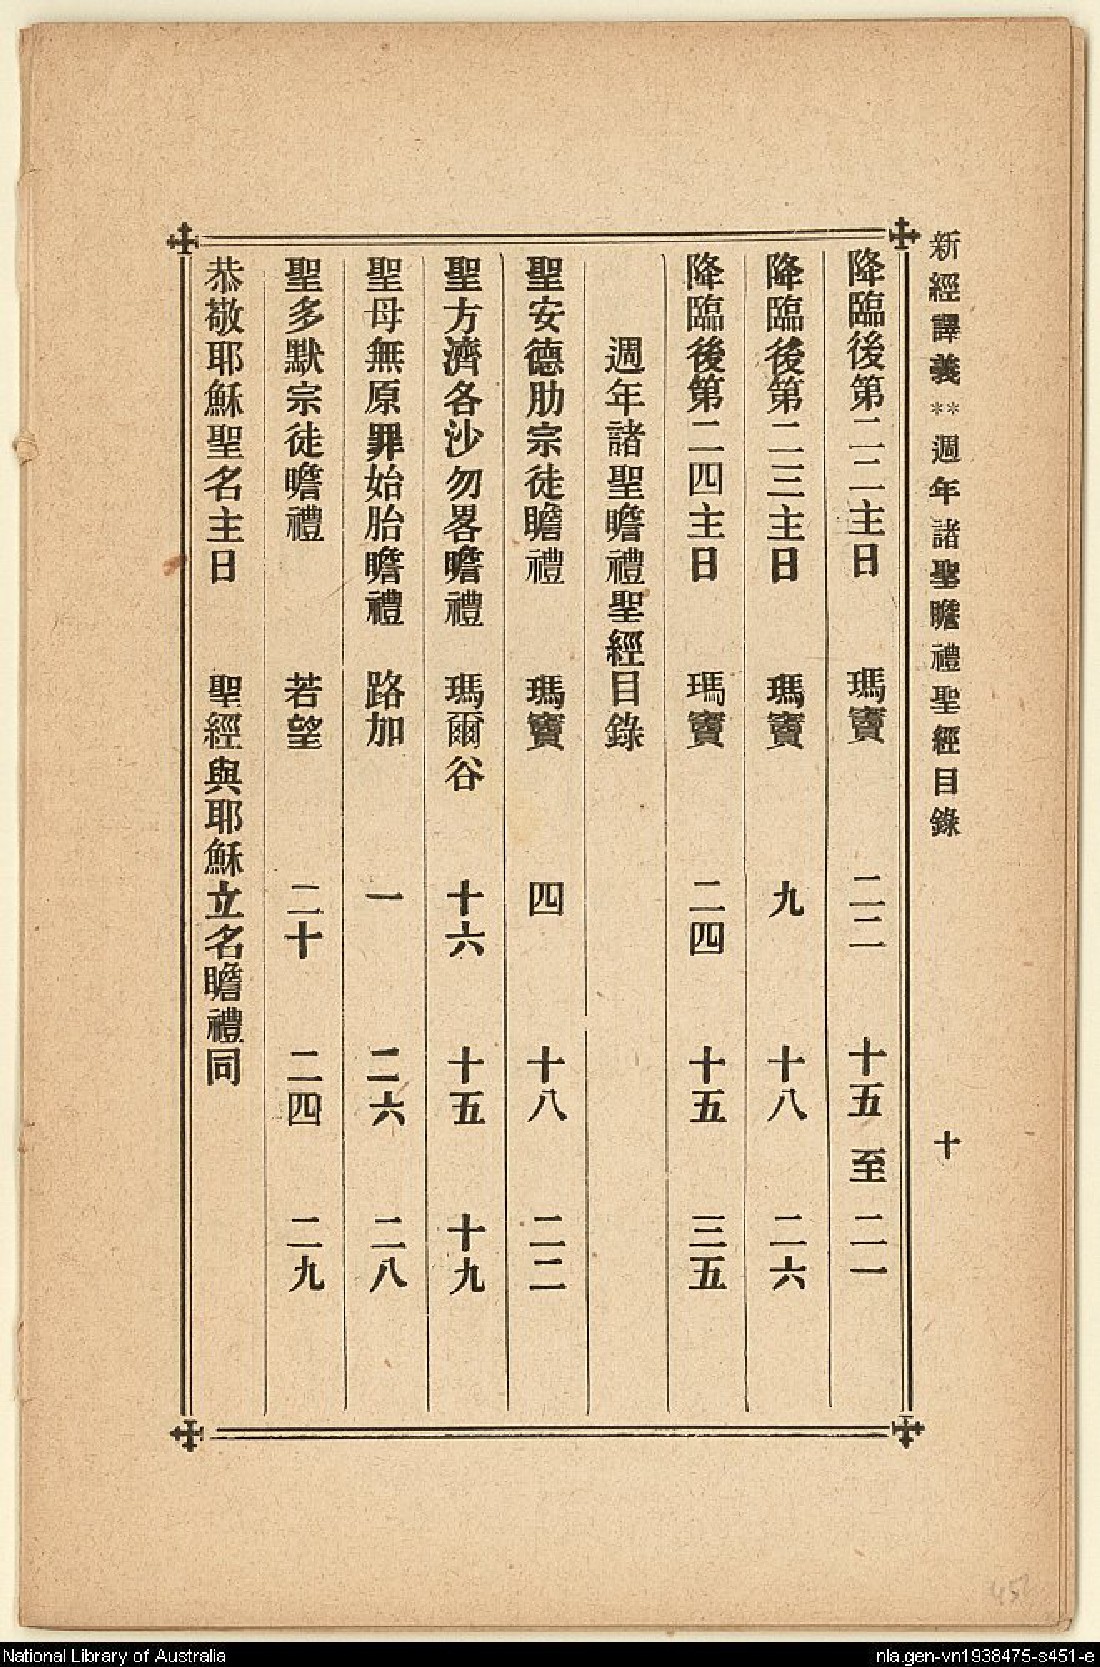 新經譯義 ** 週年諸聖瞻禮聖經目錄 十
降臨後第二二主日 瑪竇 二二 十五至二一
降臨後第二三主日 瑪竇 九 十八 二六
降臨後第二四主日 瑪竇 二四 十五 三五
週年諸聖瞻禮聖經目錄
聖安德肋宗徒瞻禮 瑪竇 四 十八 二二
聖方濟各沙勿畧瞻禮 瑪爾谷 十六 十五 十九
聖母無原罪始胎瞻禮 路加 一 二六 二八
聖多默宗徒瞻禮 若望 二十 二四 二九
恭敬耶穌聖名主日 聖經與耶穌立名瞻禮同
National Library of Australia
nla.gen-vn1938475-s451-e